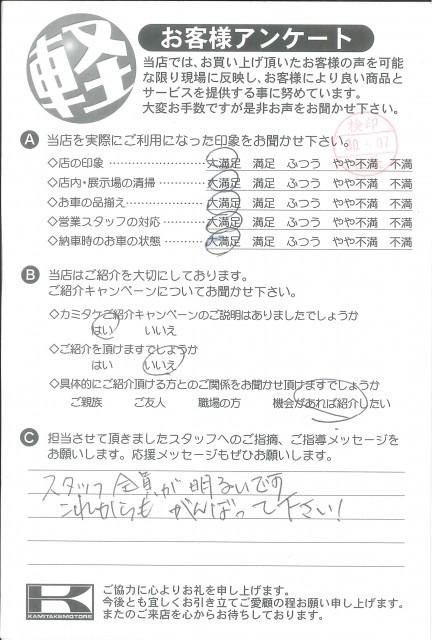 軽
お客様アンケート
当店では、お買い上げ頂いたお客様の声を可能
な限り現場に反映し、お客様により良い商品と
サービスを提供する事に努めています。
大変お手数ですが是非お声をお聞かせ下さい。
検印
A 当店を実際にご利用になった印象をお聞かせ下さい。
◇店の印象 大満足 満足 ふつう やや不満 不満
◇店内・展示場の清掃 大満足 満足 ふつう やや不満 不満
◇お車の品揃え 大満足 満足 ふつう やや不満 不満
◇営業スタッフの対応 大満足 満足 ふつう やや不満 不満
◇納車時のお車の状態 大満足 満足 ふつう やや不満 不満
B 当店はご紹介を大切にしております。
ご紹介キャンペーンについてお聞かせ下さい。
◇カミタケご紹介キャンペーンのご説明はありましたでしょうか
はい いいえ
◇ご紹介を頂けますでしょうか
はい いいえ
◇具体的にご紹介頂ける方とのご関係をお聞かせ頂けますでしょうか
ご親族 ご友人 職場の方 機会があれば紹介したい
C 担当させて頂きましたスタッフへのご指摘、ご指導メッセージを
お願いします。応援メッセージもぜひお願いします。
スタッフ全員が明るいです
これからもがんばって下さい!
KAMITAKEMOTORS
ご協力に心よりお礼を申し上げます。
今後とも宜しくお引き立てご愛顧の程お願い申し上げます。
またのご来店を心からお待ちしております。